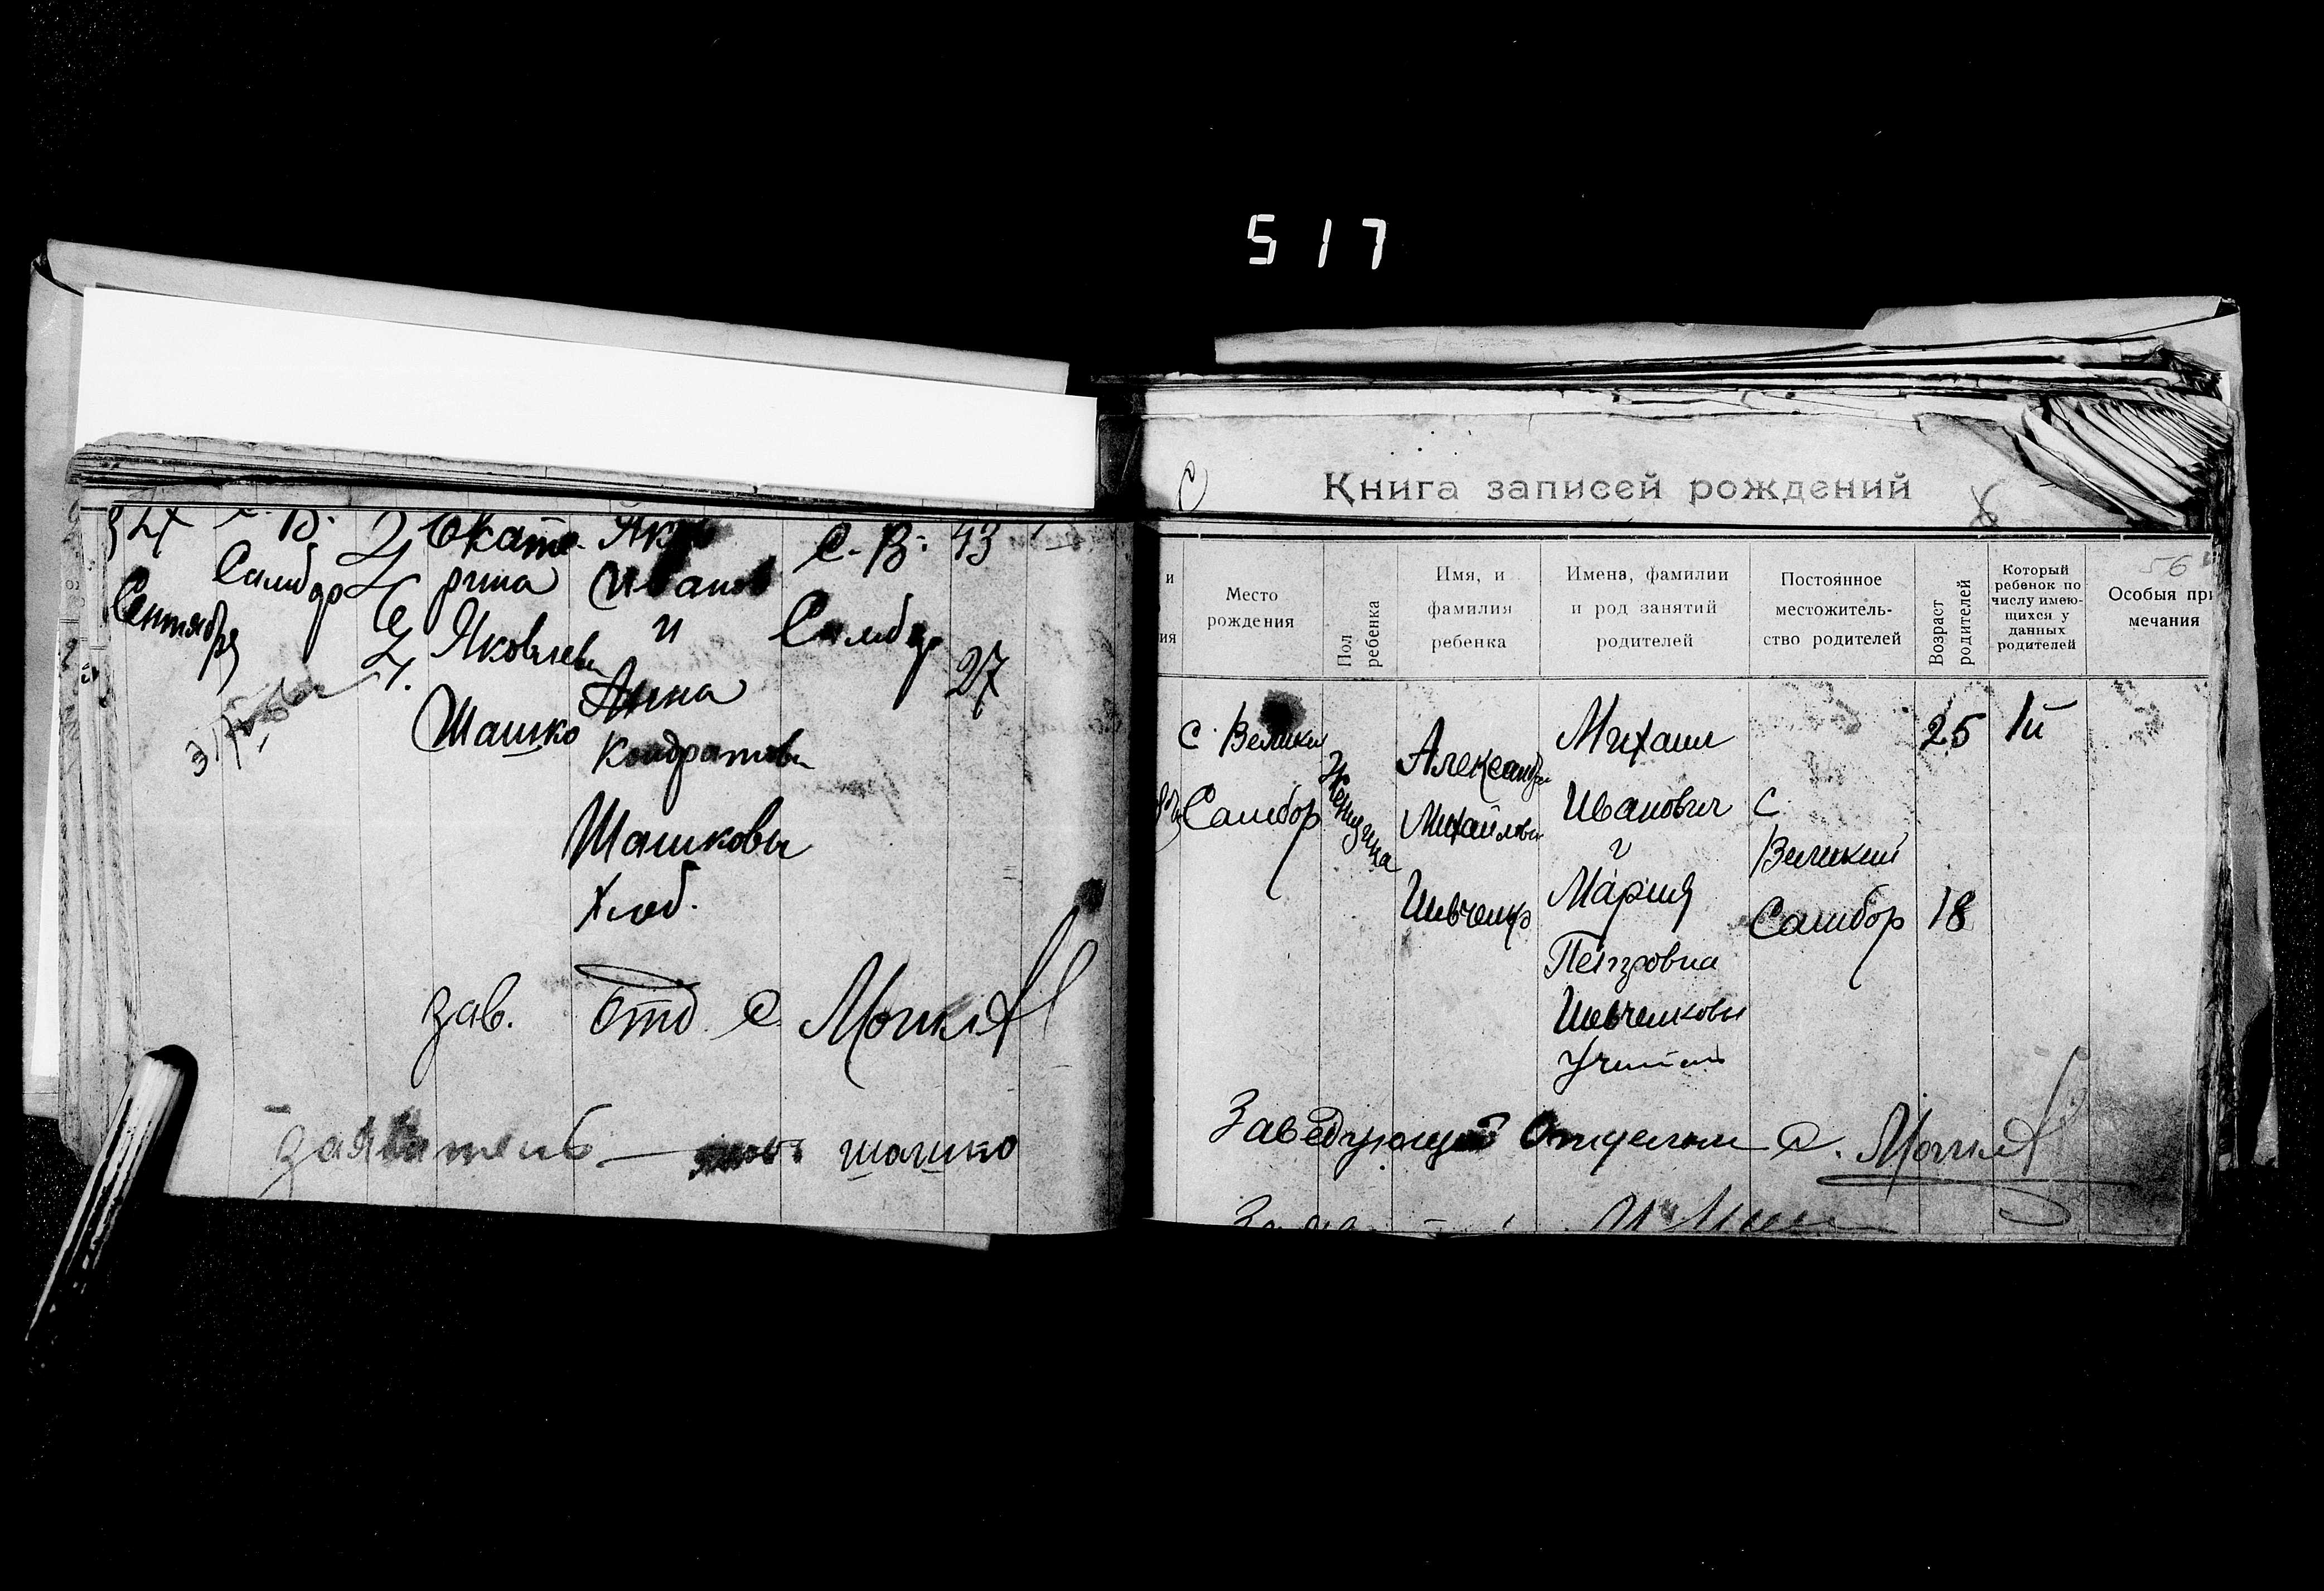 517
24 с. В. 2 Екате- Яков С. В. 43
Самбор рина Иванов
Сентября Яковлевна и Самбор
Шашко Анна 27
Кондратовна
Шашковы
Хлеб.
зав. Отд. С.
заявитель — шашко
Книга записей рождений
56
Место рождения
Пол ребенка
Имя, и фамилия ребенка
Имена, фамилии и род занятий родителей
Постоянное местожитель-ство родителей
Возраст родителей
Который ребенок по числу имею-щихся у данных родителей
Особыя при мечания
с. Великий
Самбор
Женщина
Александра
Михайловна
Шевченко
Михаил
Иванович
и
Мария
Петровна
Шевченковы
Учитель
с.
Великий
Самбор
25
18
1й
Заведующий Отделом С.